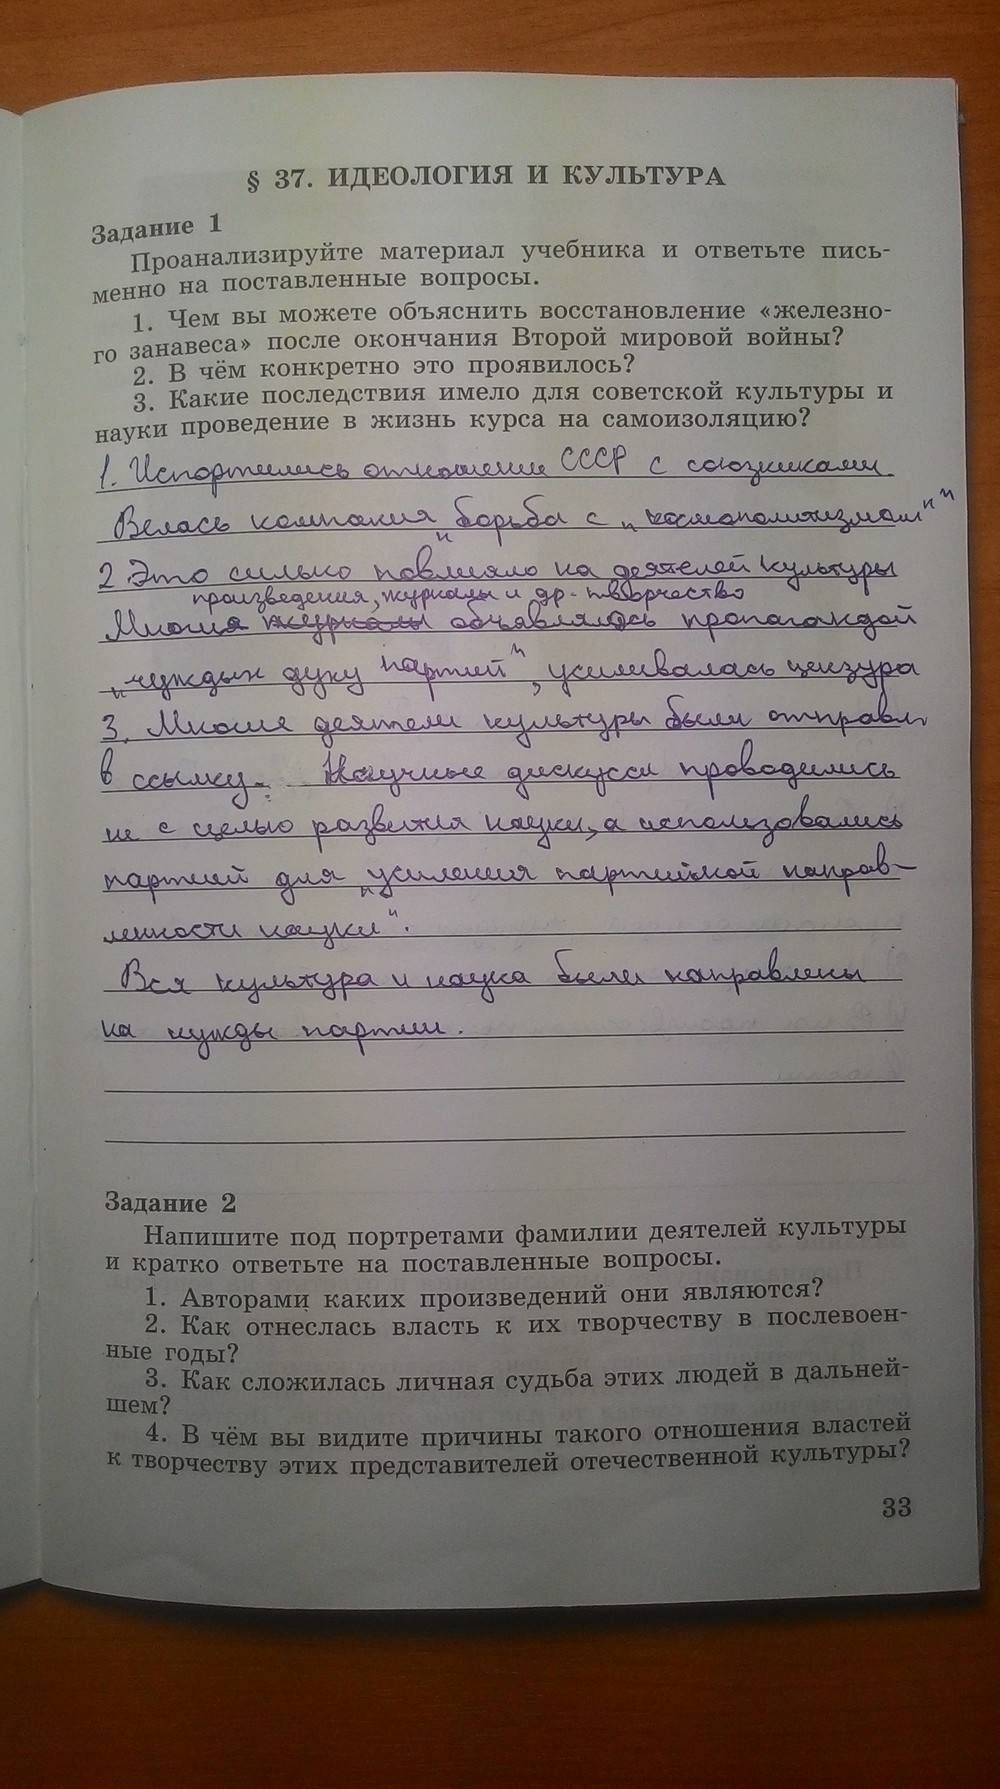 § 37. ИДЕОЛОГИЯ И КУЛЬТУРА
Задание 1
Проанализируйте материал учебника и ответьте пись-
менно на поставленные вопросы.
1. Чем вы можете объяснить восстановление «железно-
го занавеса» после окончания Второй мировой войны?
2. В чём конкретно это проявилось?
3. Какие последствия имело для советской культуры и
науки проведение в жизнь курса на самоизоляцию?
1. Испортились отношении СССР с союзниками
Велась компания "борьба с "космополитизмом""
2 Это сильно повлияло на деятелей культуры
произведения, журналы и др. творчество
Многия журналы объявлялось пропагандой
"чуждых духу партии", усиливалась цензура
3. Многие деятели культуры были отправл.
в ссылку. Научные дискусси проводились
не с целью развития науки, а использовались
партией для "усиления партийной направ-
ленности науки".
Вся культура и наука были направлены
на нужды партии.
Задание 2
Напишите под портретами фамилии деятелей культуры
и кратко ответьте на поставленные вопросы.
1. Авторами каких произведений они являются?
2. Как отнеслась власть к их творчеству в послевоен-
ные годы?
3. Как сложилась личная судьба этих людей в дальней-
шем?
4. В чём вы видите причины такого отношения властей
к творчеству этих представителей отечественной культуры?
33